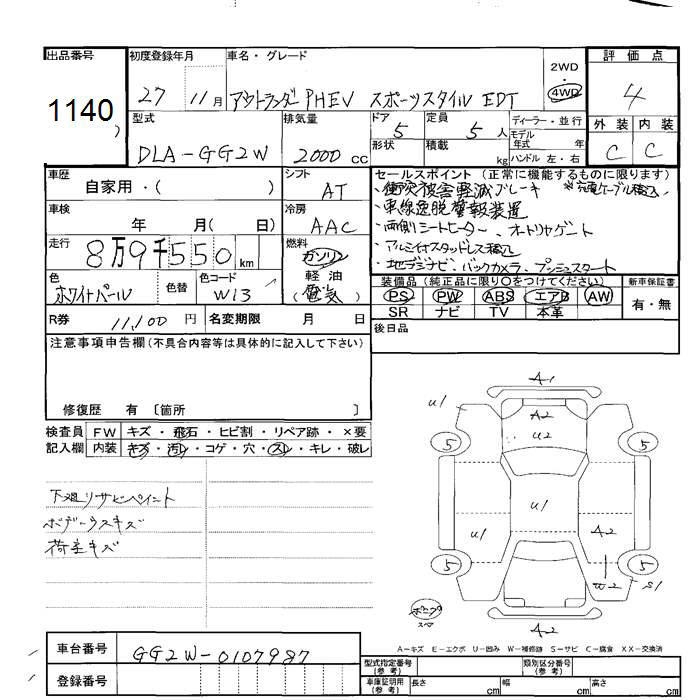 出品番号 初度登録年月 車名・グレード 2WD ・ 4WD 評価点
1140 27 11月 アウトランダPHEV スポーツスタイルEDT 4
型式 排気量 ドア 定員 ディーラー・並行 外装 内装
DLA-GG2W 2000 CC 5 5 人 モデル年式 年 C C
形状 積載 kg ハンドル 左・右
車歴 シフト セールスポイント (正常に機能するものに限ります)
自家用・( ) AT ・衝突被害軽減ブレーキ ※充電ケーブル積込
車検 冷房 ・車線逸脱警報装置
年 月( 日) AAC ・両側シートヒーター、オートリヤゲート
走行 燃料 ・アルミ付スタッドレス積込
8万9千550km ガソリン ・地デジナビ、バックカメラ、プッシュスタート
色 色替 色コード 軽油 装備品 (純正品に限り○をつけてください) 新車保証書
ホワイトパール W13 (電気) PS PW ABS エアB AW 有・無
SR ナビ TV 本革
R券 11,100 円 名変期限 月 日 後日品
注意事項申告欄(不具合内容等は具体的に記入して下さい)
修復歴 有 〔箇所 〕
検査員 FW キズ・飛石・ヒビ割・リペア跡・×要
記入欄 内装 キズ・汚レ・コゲ・穴・スレ・キレ・破レ
下廻リサビペイント
ボデーウスキズ
荷室キズ
A1
U1 A2
U2
5 5
U1
U1 A2
5 5
W2 S1
A2
A-キズ E-エクボ U-凹み W-補修跡 S-サビ C-腐食 XX-交換済
車台番号 GG2W-0107987
登録番号
型式指定番号(参考) 類別区分番号(参考)
車庫証明用(参考) 長さ cm 幅 cm 高さ cm